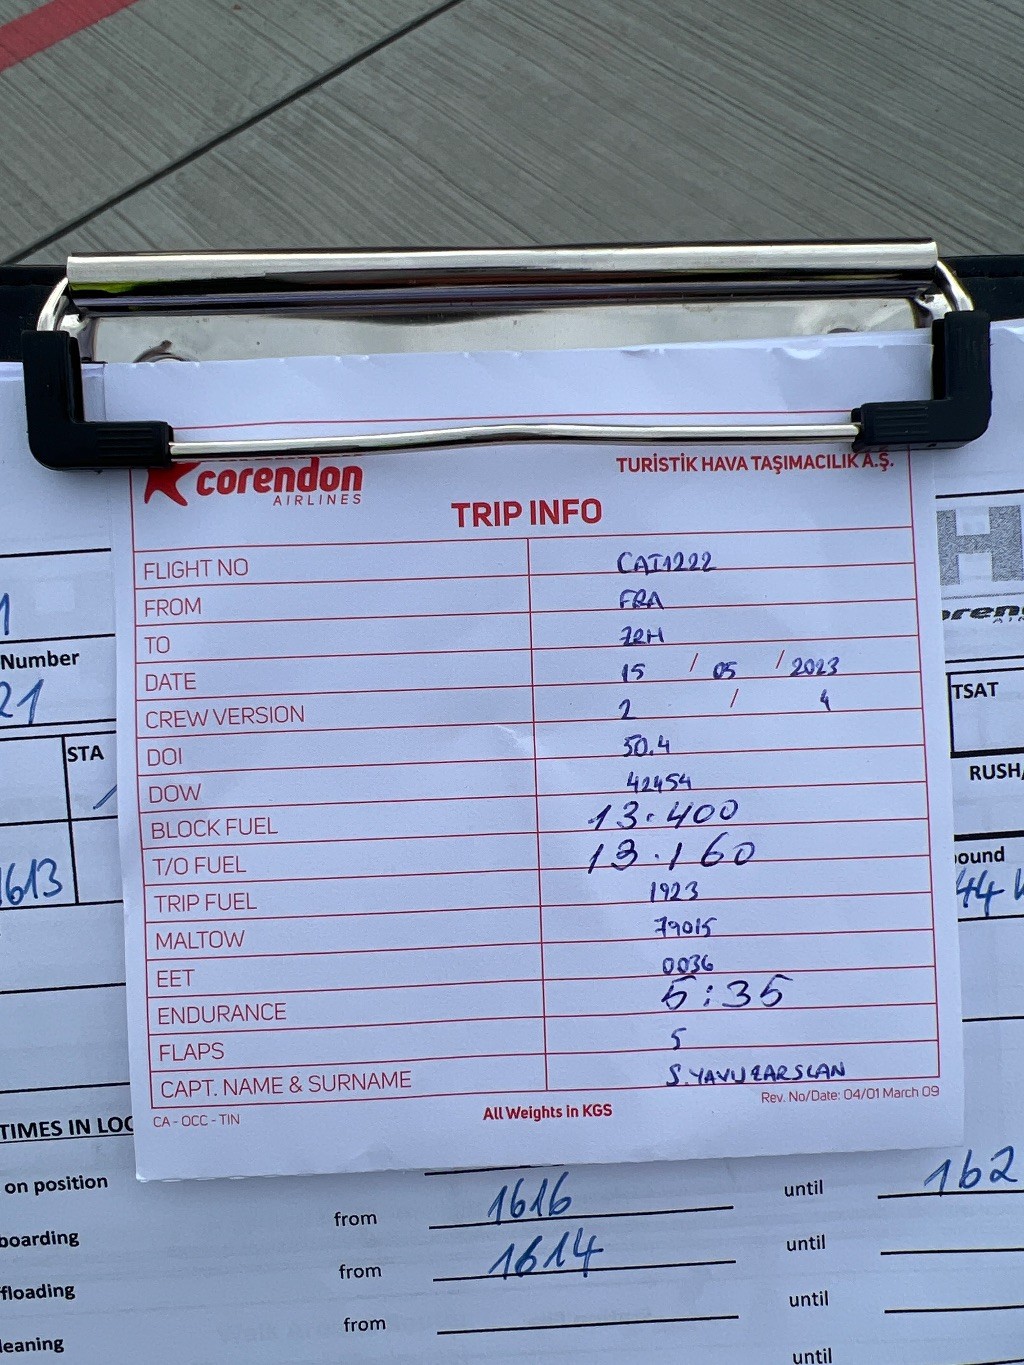 corendon
AIRLINES
TURİSTİK HAVA TAŞIMACILIK A.Ş.
TRIP INFO
FLIGHT NO CAI1222
FROM FRA
TO ZRH
DATE 15 / 05 / 2023
CREW VERSION 2 / 4
DOI 50.4
DOW 42454
BLOCK FUEL 13.400
T/O FUEL 13.160
TRIP FUEL 1923
MALTOW 79015
EET 0036
ENDURANCE 5:35
FLAPS 5
CAPT. NAME & SURNAME S.YAVUZARSLAN
CA - OCC - TIN
All Weights in KGS
Rev. No/Date: 04/01 March 09
Number
21
STA
1613
H
TSAT
RUSH/
ound
44
TIMES IN LOC
on position
boarding from 1616 until 162
ffloading from 1614 until
leaning from until
until